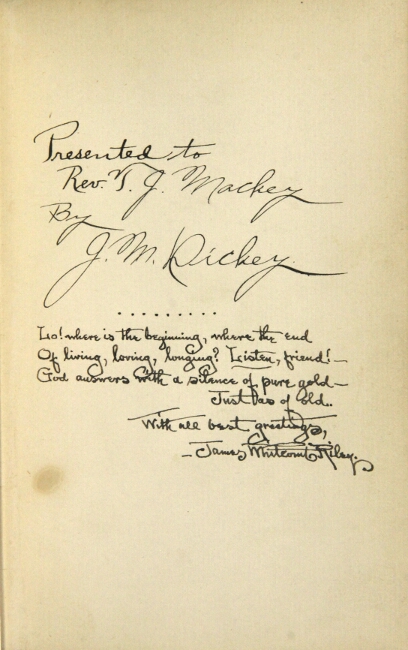 Presented to
Rev. T. J. Mackey
By
J. M. Dickey.
. . . . . . . . .
Lo! where is the beginning, where the end
Of living, loving, longing? Listen, friend!—
God answers with a silence of pure gold—
Just as of old..
With all best greetings,
—James Whitcomb Riley.